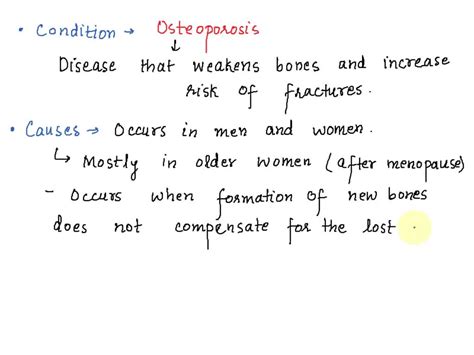 • Condition → Osteoporosis
↓
Disease that weakens bones and increase
risk of fractures.
• Causes → Occurs in men and women.
↳ Mostly in older women (after menopause)
- Occurs when formation of new bones
does not compensate for the lost